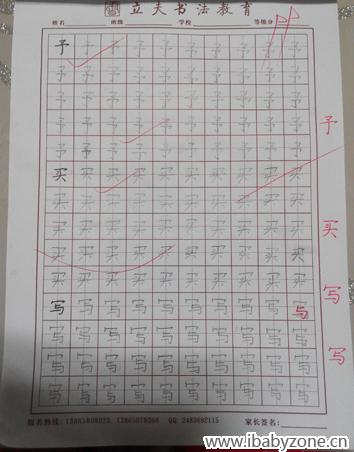 立夫书法教育
姓名 班级 学校 等级分
予 予 予 予 予 予 予 予 予 予
予 予 予 予 予 予 予 予 予 予
予 予 予 予 予 予 予 予 予 予
予 予 予 予 予 予 予 予 予 予
予 予 予 予 予 予 予 予 予 予
买 买 买 买 买 买 买 买 买 买
买 买 买 买 买 买 买 买 买 买
买 买 买 买 买 买 买 买 买 买
买 买 买 买 买 买 买 买 买 买
买 买 买 买 买 买 买 买 买 买
写 写 写 写 写 写 写 写 写 写
写 写 写 写 写 写 写 写 写 写
写 写 写 写 写 写 写 写 写 写
写 写 写 写 写 写 写 写 写 写
予
买
写
与
写
报名热线: QQ: 家长签名:
www.ibabyzone.cn